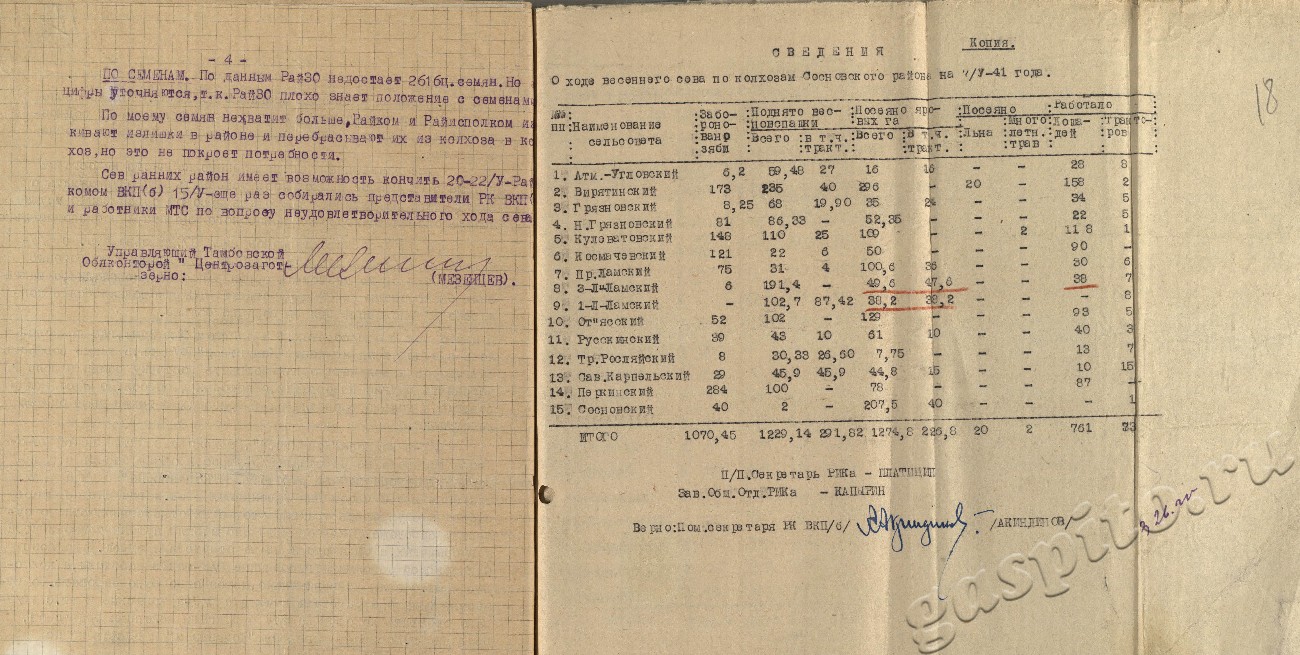 - 4 -
ПО СЕМЕНАМ. По данным РайЗО недостает 2616ц. семян. Но
цифры уточняются, т.к. РайЗО плохо знает положение с семенами
По моему семян нехватит больше, Райком и Райисполком из
кивают мелишки в районе и перебрасывают их из колхоза в ко
хоз, но это не покроет потребности.
Сев ранних район имеет возможность кончить 20-22/У-Рай
комом ВКП(б) 15/У-еще раз собирались представители РК ВКП(
и работники МТС по вопросу неудовлетворительного хода сева
Управляющий Тамбовской
Облконторой "Центрозагот-
зерно:
(МЕЗЕНЦЕВ).
Копия.
18
СВЕДЕНИЯ
О ходе весеннего сева по колхозам Сосновского района на 7/У-41 года.
№№ пп : Наименование сельсовета : Забо-роно-вано зяби : Поднято вес-новспашки : Посеяно яро-вых га : Посеяно : Работало
Всего : в т.ч. тракт. : Всего : В т.ч. тракт. : Льна : Много летн. трав : Лоша-дей : Тракто-ров
1. Атм.-Угловский 6,2 59,48 27 16 16 - - 28 8
2. Вирятинский 173 235 40 296 - 20 - 158 2
3. Грязновский 8,25 68 19,90 35 24 - - 34 5
4. Н.Грязновский 81 86,33 - 52,35 - - - 22 5
5. Кулеватовский 148 110 25 109 - - 2 118 1
6. Космачевский 121 22 6 50 - - - 90 -
7. Пр.Ламский 75 31 4 100,6 36 - - 30 6
8. 3-Л-Ламский 6 191,4 - 49,6 47,6 - - 38 7
9. 1-Л-Ламский - 102,7 87,42 38,2 38,2 - - - 8
10. От"ясский 52 102 - 129 - - - 93 5
11. Русскинский 39 43 10 61 10 - - 40 3
12. Тр.Росляйский 8 30,33 26,60 7,75 - - - 13 7
13. Сав.Карпельский 29 45,9 45,9 44,8 15 - - 10 15
14. Перкинский 284 100 - 78 - - - 87 -
15. Сосновский 40 2 - 207,5 40 - - - 1
ИТОГО 1070,45 1229,14 291,82 1274,8 226,8 20 2 761 73
П/П.Секретарь РИКа - ПЛАТИЦИН
Зав.Общ.Отд.РИКа - КАПЫРИН
Верно: Пом.секретаря РК ВКП/б/ /АКИНДИНОВ/
gaspito.ru